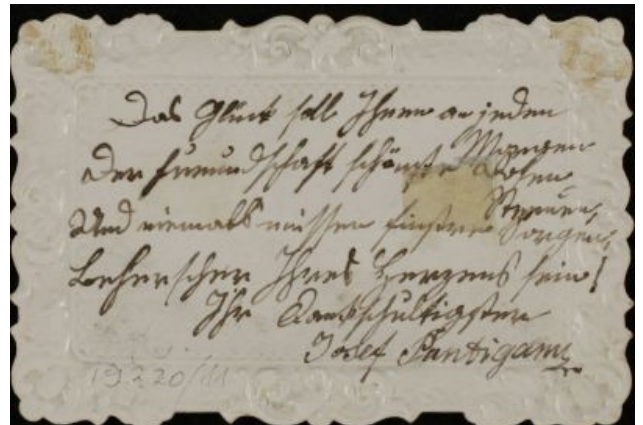 Das Glück soll Ihnen an jeden
Morgen
Der Freundschaft schönste Rosen
Streuen,
Und niemals müssen finstre Sorgen,
Beherscher Ihres Herzens sein!
Ihr Dankschultigster
Josef Pantigam
19220/11